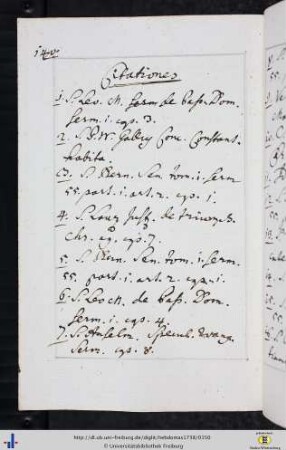 Citationes
1. S. Leo. M. Serm de pass. Dom.
Serm. 1. cap. 3.
2. Conc. Constant.
habita.
3. S. Bern. Sen. tom. 1. Serm
55. part. 1. art. 2. cap. 1.
4. S. Laur. Just. de
Chr. cap. 7.
5. S. Bern. Sen. tom. 1. Serm.
55. part. 1. art. 2. cap. 1.
6. S. Leo M. de pass. Dom.
Serm. 1. cap. 4.
7. S. Anselm. Specul. Evang.
Serm. cap. 8.
http://dl.ub.uni-freiburg.de/diglit/hebdomas1738/0300
© Universitätsbibliothek Freiburg